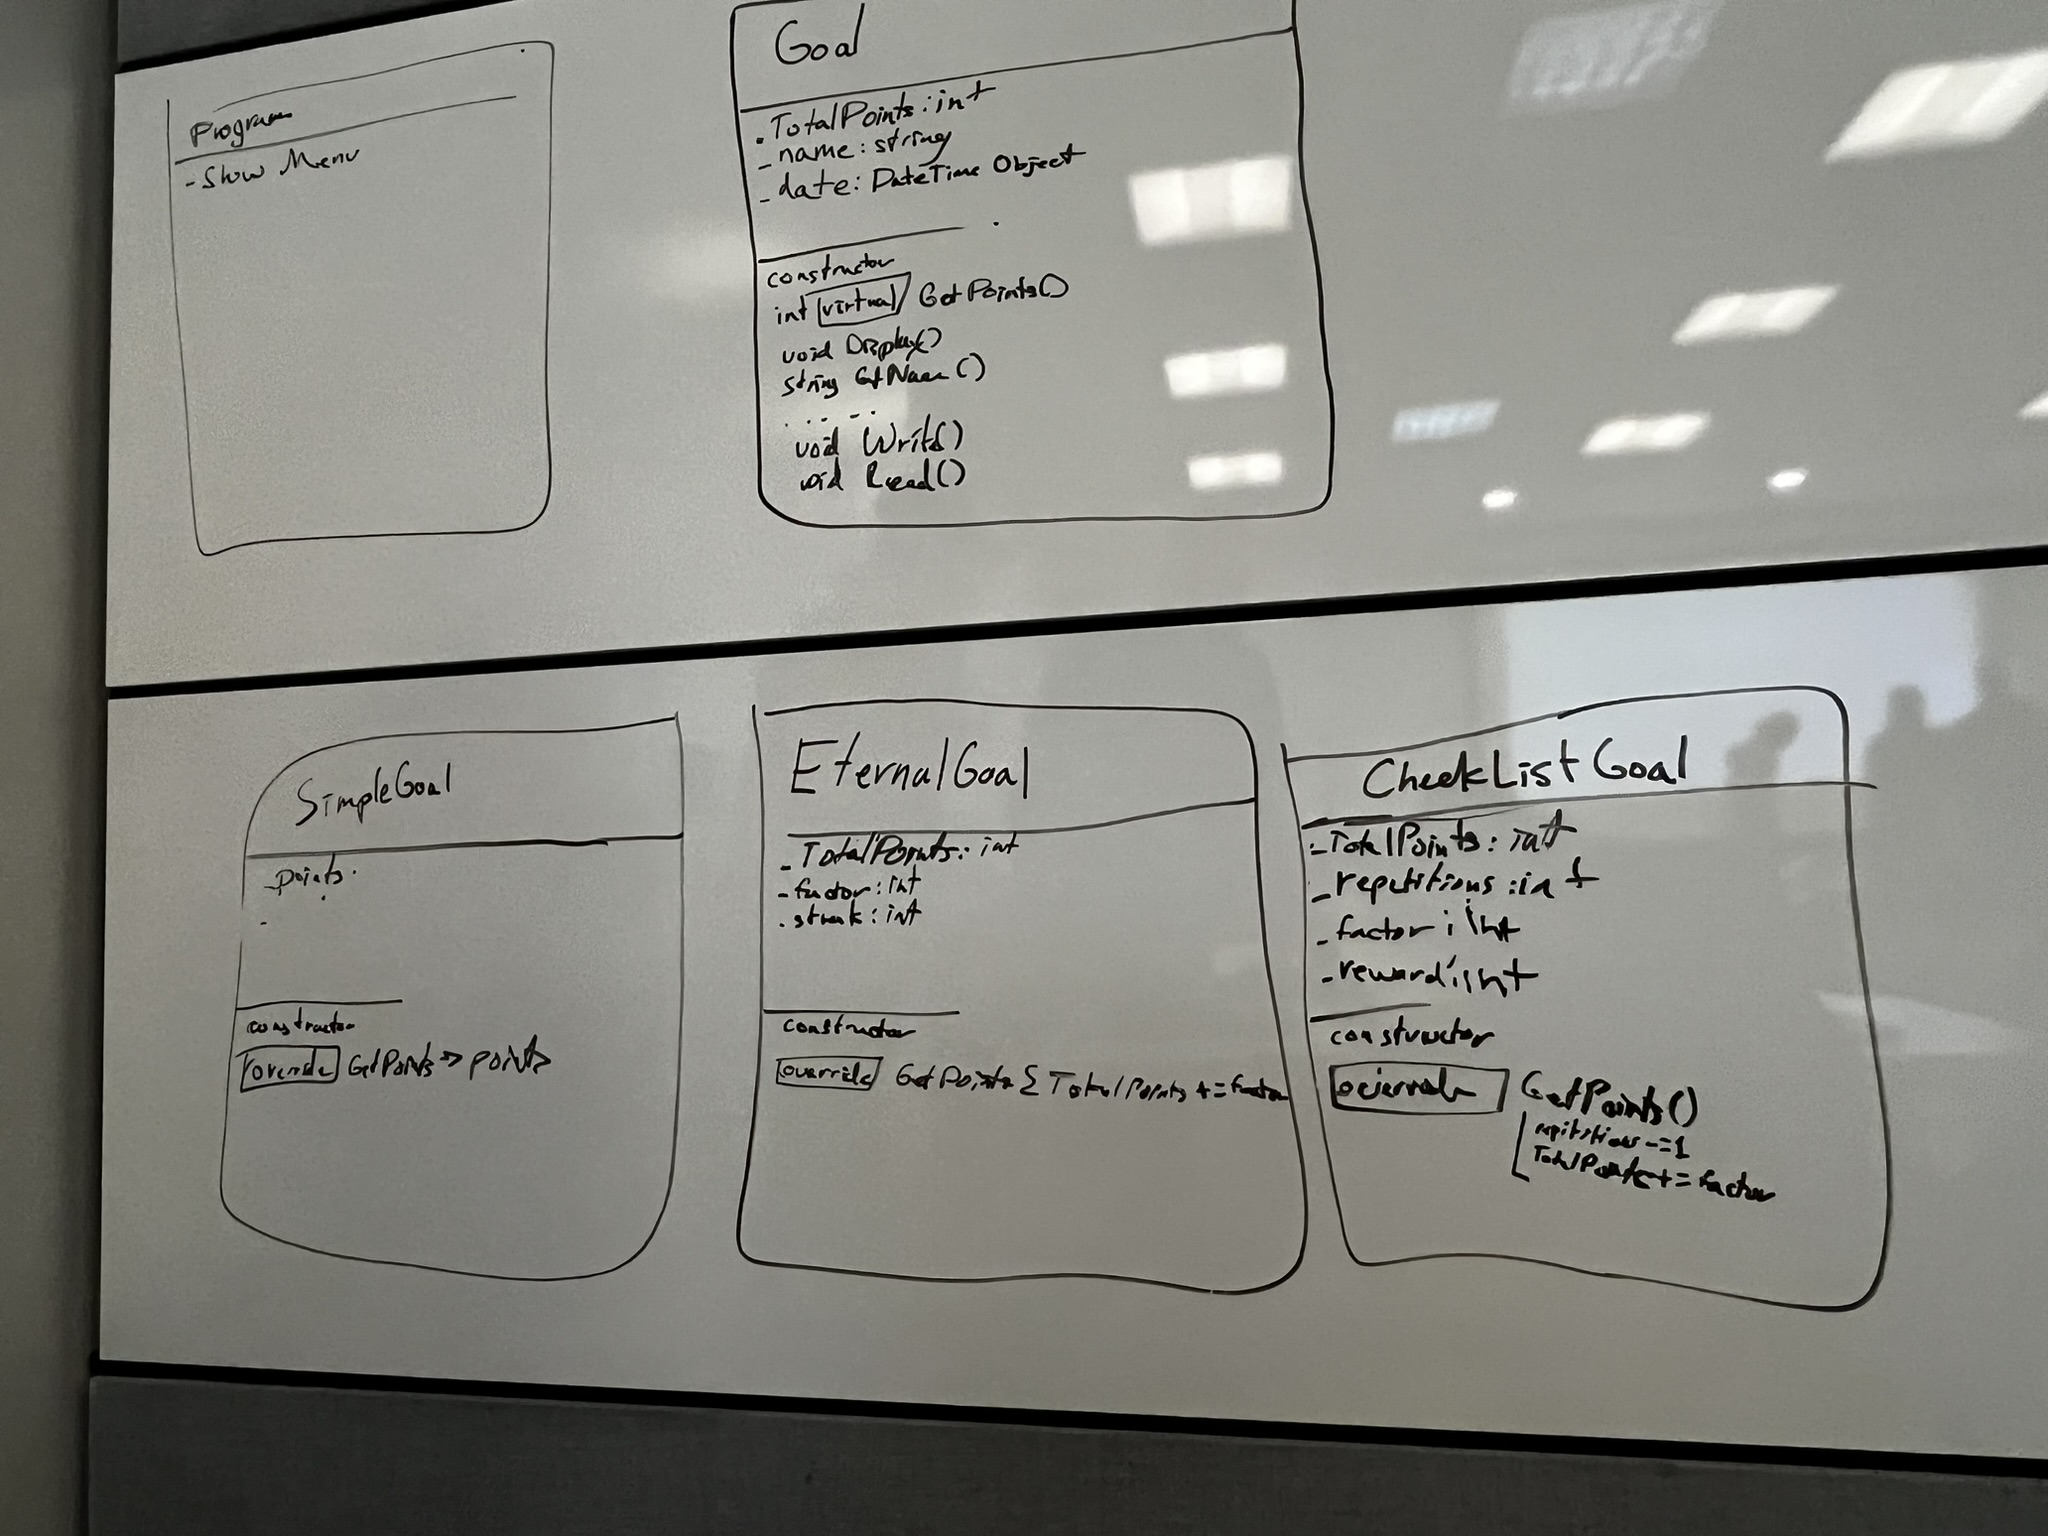 Program
- Show Menu
Goal
- TotalPoints: int
- name: string
- date: DateTime Object
constructor
int virtual GetPoints()
void Display()
string GetName()
.. -- ..
void Write()
void Read()
SimpleGoal
- points.
-
constructor
override GetPoints => points
EternalGoal
- TotalPoints: int
- factor: int
- streak: int
constructor
override GetPoints { TotalPoints += factor
CheckListGoal
- TotalPoints: int
- repetitions: int
- factor: int
- reward: int
constructor
override GetPoints()
repitstions -= 1
TotalPoints += factor